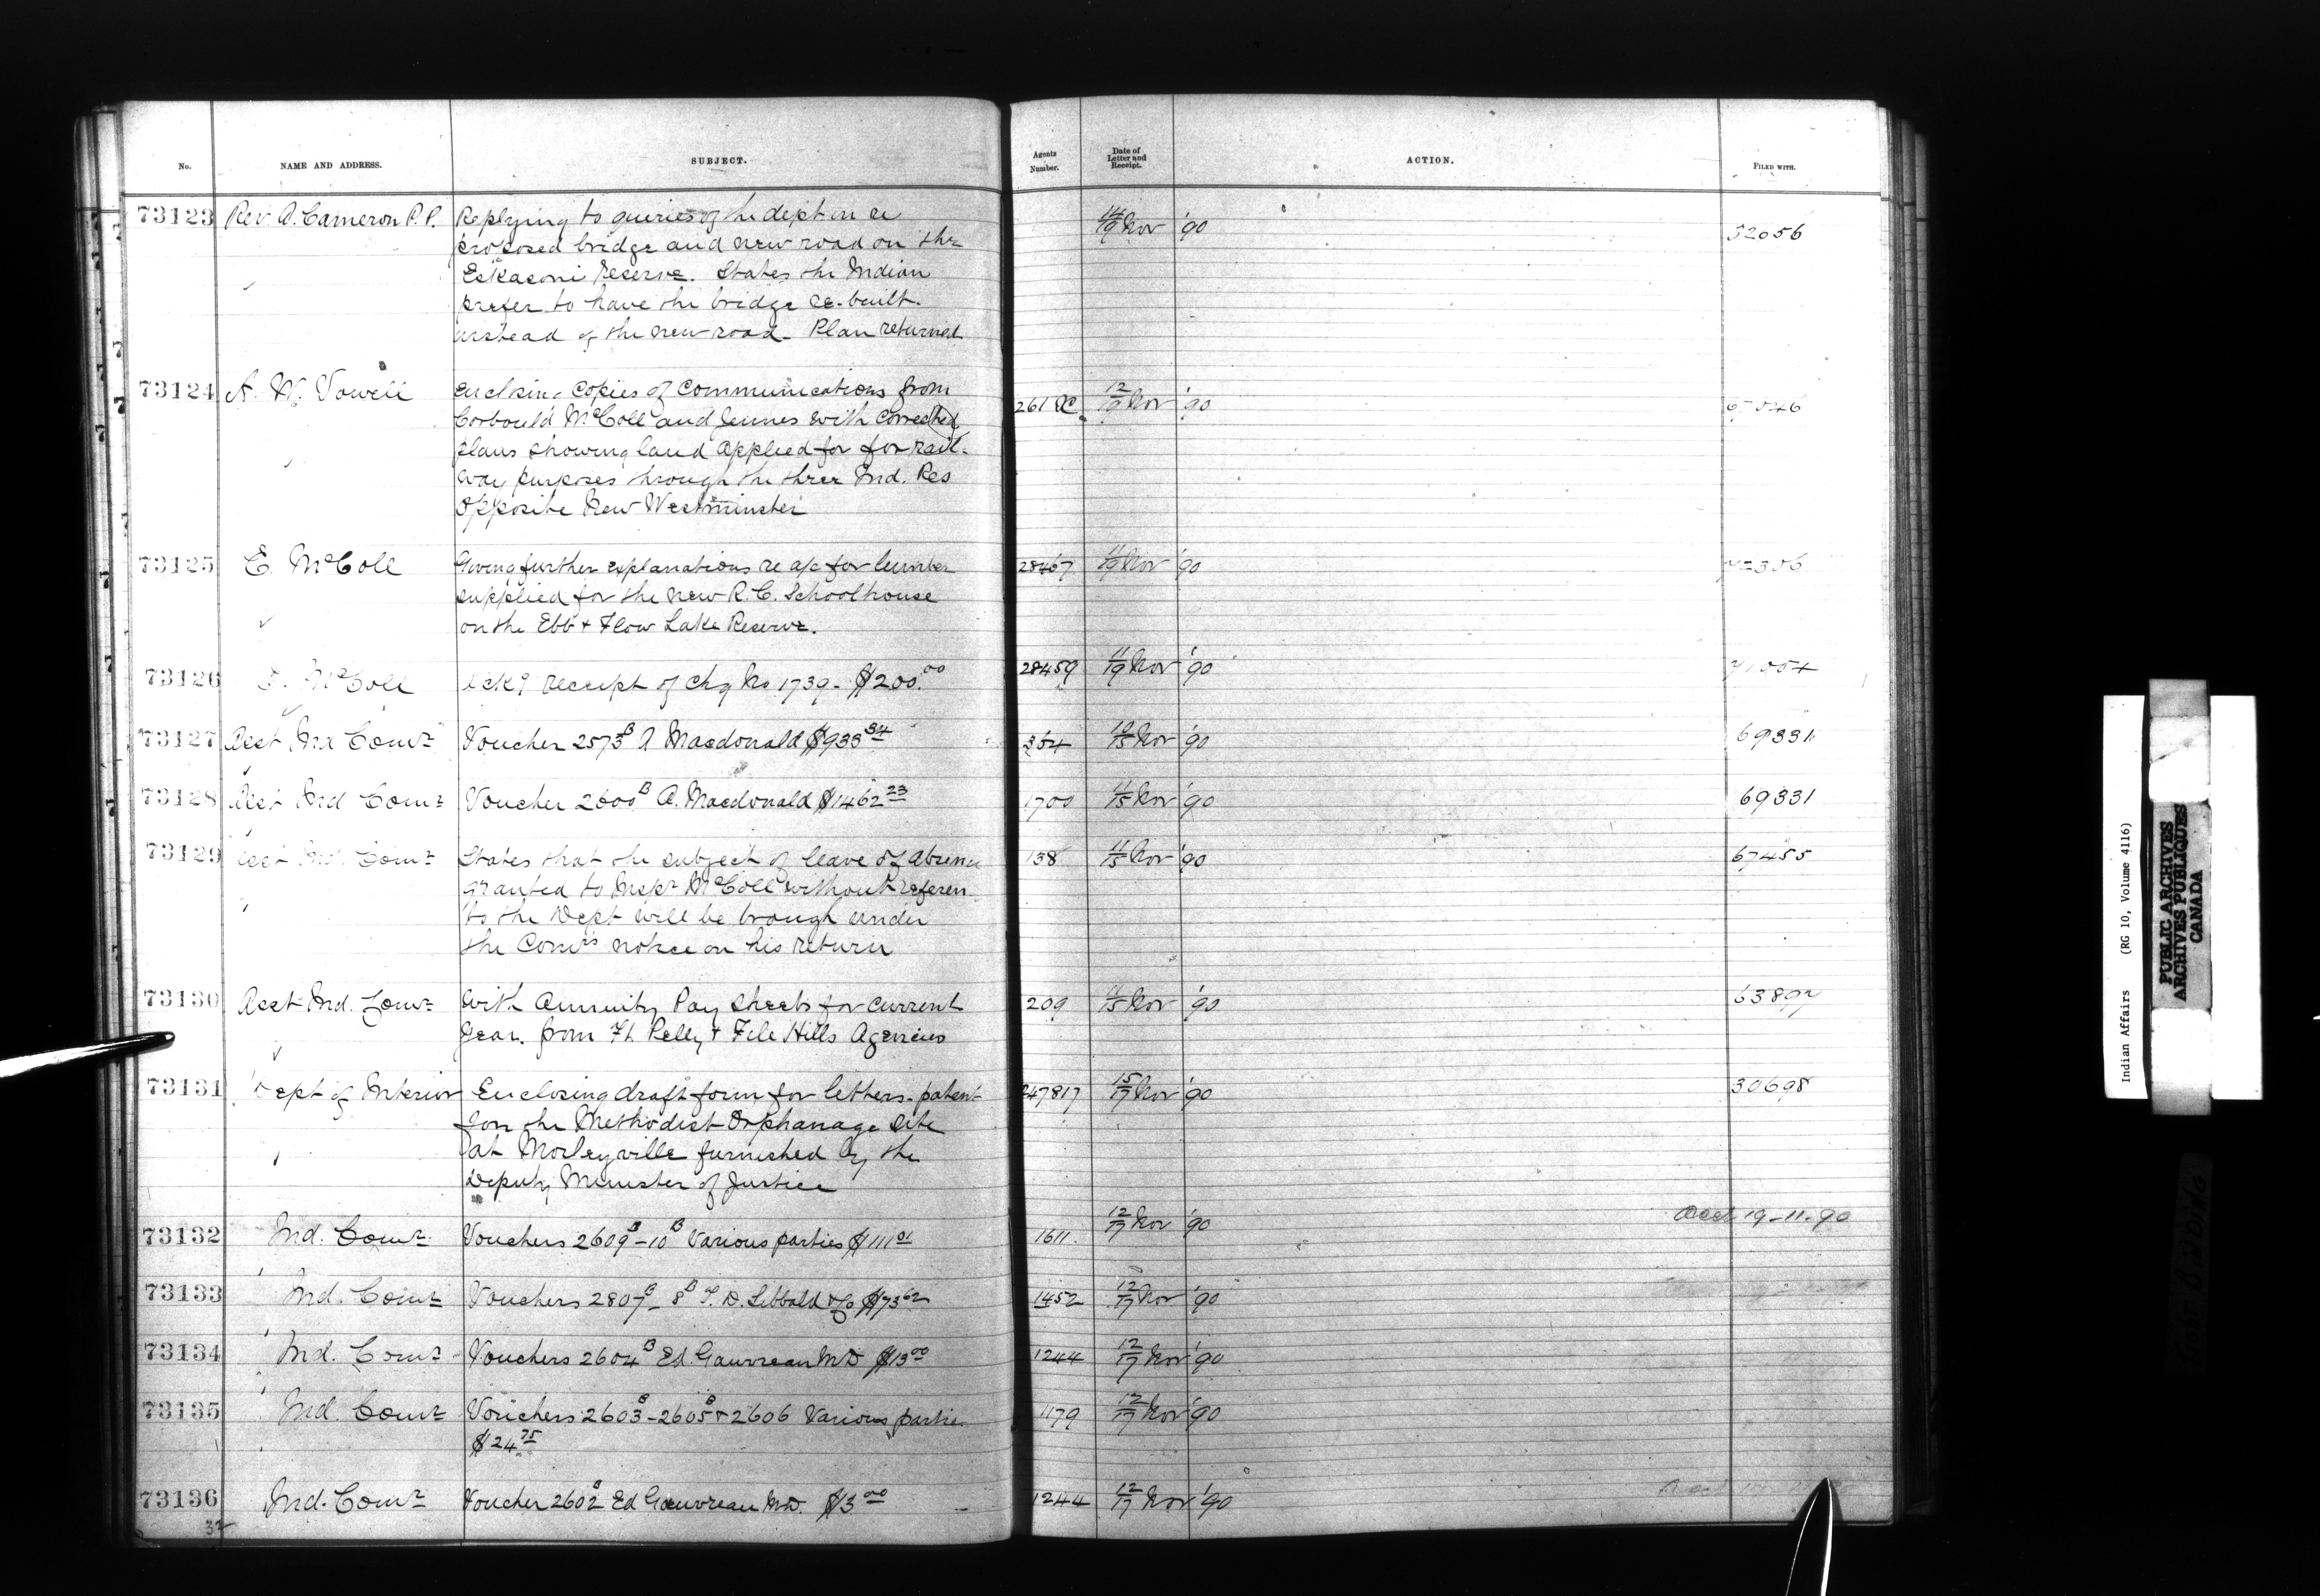 No. NAME AND ADDRESS. SUBJECT. Agents Number. Date of Letter and Receipt. ACTION. FILED WITH.
73123 Rev. A. Cameron P.P. Replying to queries of the dept in re 14/19 Nov '90 52056
proposed bridge and new road on the
Eskasoni Reserve. States the Indian
prefer to have the bridge re-built
instead of the new road - Plan returned
73124 A. W. Vowell Enclsing Copies of Communications from 261 12/19 Nov '90
Corbould McColl and Jennes with corrected
plans showing land applied for for rail-
way purposes through the three Ind. Res
opposite New Westminster
73125 E. McColl Giving further explanations re a/c for lumber 28467 11/19 Nov '90 72306
supplied for the new R.C. Schoolhouse
on the Ebb + Flow Lake Reserve.
73126 E. McColl Ackg receipt of chq No 1739 - $200.00 28459 11/19 Nov '90 71054
73127 Asst Ind Comr Voucher 2573B A Macdonald $933 34 364 10/15 Nov '90 69331
73128 Asst Ind Comr Voucher 2600B A. Macdonald $1462 23 1700 11/15 Nov '90 69331
73129 Asst Ind. Comr States that the subject of leave of absence 138 11/15 Nov '90 67455
granted to Inspr McColl without referen
to the Dept will be brough under
the Comrs notice on his return
73130 Asst Ind. Comr With Annuity Pay Sheets for current 209 11/15 Nov '90 63897
year. from Ft Pelly + File Hills Agencies
73131 Dept of Interior Enclosing draft form for letters-patent 247817 15/17 Nov '90 30698
for the Methodist Orphanage Site
at Morleyville furnished by the
Deputy Minister of Justice
73132 Ind. Comr Vouchers 2609B-10B Various parties $111 01 1611. 12/17 Nov '90 Acct 19-11-90
73133 Ind. Comr Vouchers 2807B-8B T. D. Sibbald $73 62 1452 12/17 Nov '90
73134 Ind. Comr Vouchers 2604B Ed. Gauvreau MD $13 00 1244 12/17 Nov '90
73135 Ind. Comr Vouchers 2603B-2605B + 2606 Various partie 1179 12/17 Nov '90
$24 75
73136 Ind. Comr Voucher 2602B Ed Gauvreau MD. $3 00 1244 12/17 Nov '90
32
Indian Affairs (RG 10, Volume 4116)
PUBLIC ARCHIVES
ARCHIVES PUBLIQUES
CANADA